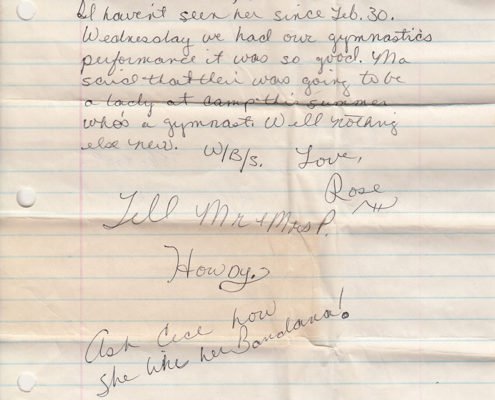 I haven't seen her since Feb. 30.
Wednesday we had our gymnastics
performance it was so good. Ma
said that their was going to be
a lady at camp this summer
who's a gymnast. Well nothing
else new. W/B/S. Love,
Rose
Tell Mr + Mrs P.
Howdy.
Ask Cece how
she like her Bandana!